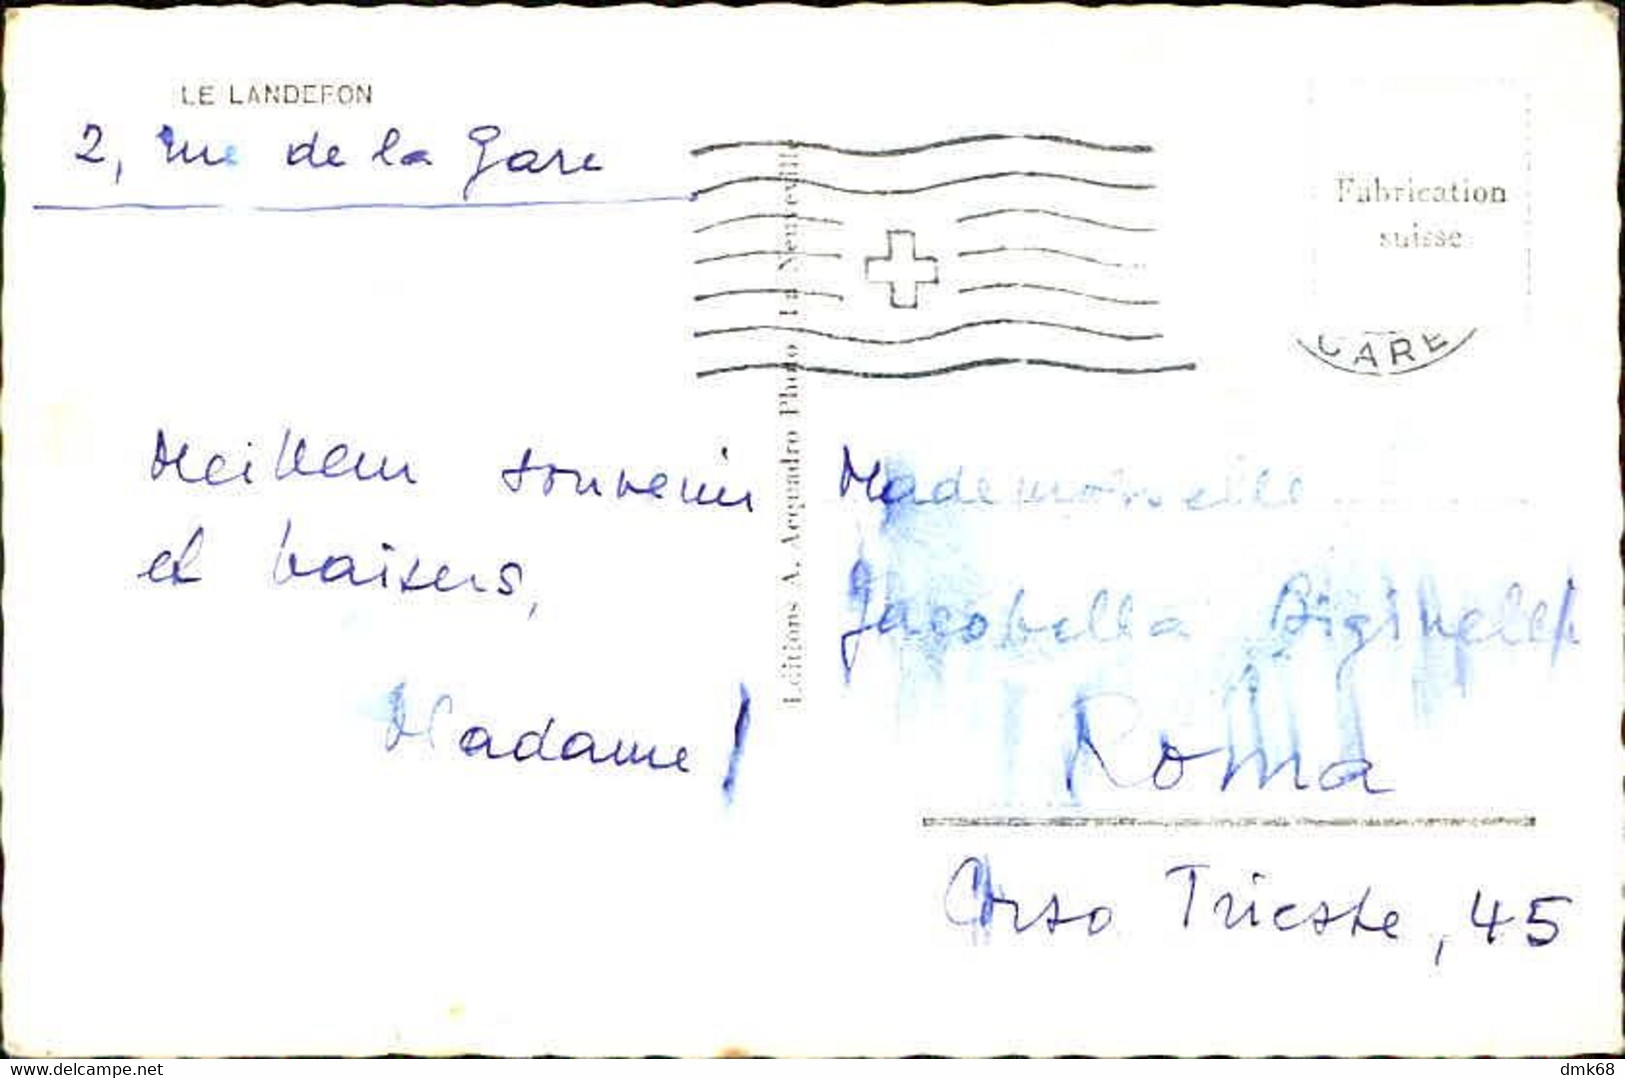 LE LANDERON
2, rue de la Gare
Fabrication
suisse
GARE
Editions A. Acquadro Photo La Neuveville
Meilleur souvenir
et baisers,
Madame
Mademoiselle
Jacobella Biginelli
Roma
Corso Trieste, 45
delcampe.net
dmk68